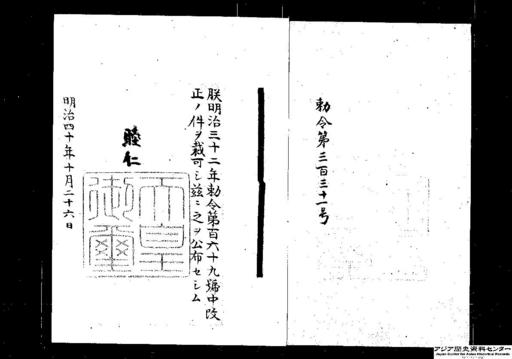 勅令第三百三十一号
朕明治三十二年勅令第百六十九號中改
正ノ件ヲ裁可シ茲ニ之ヲ公布セシム
睦仁
天皇
御璽
明治四十年十月二十六日
アジア歴史資料センター
Japan Center for Asian Historical Records